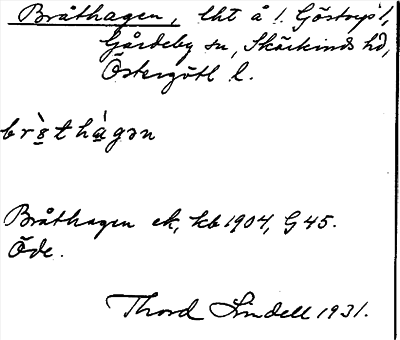 Bråthagen, lht å l. Göstorp 1,
Gårdeby sn, Skärkinds hd,
Östergötl l.
Bråthagen ek, kb 1904, G 45.
Öde.
Thord Lindell 1931.